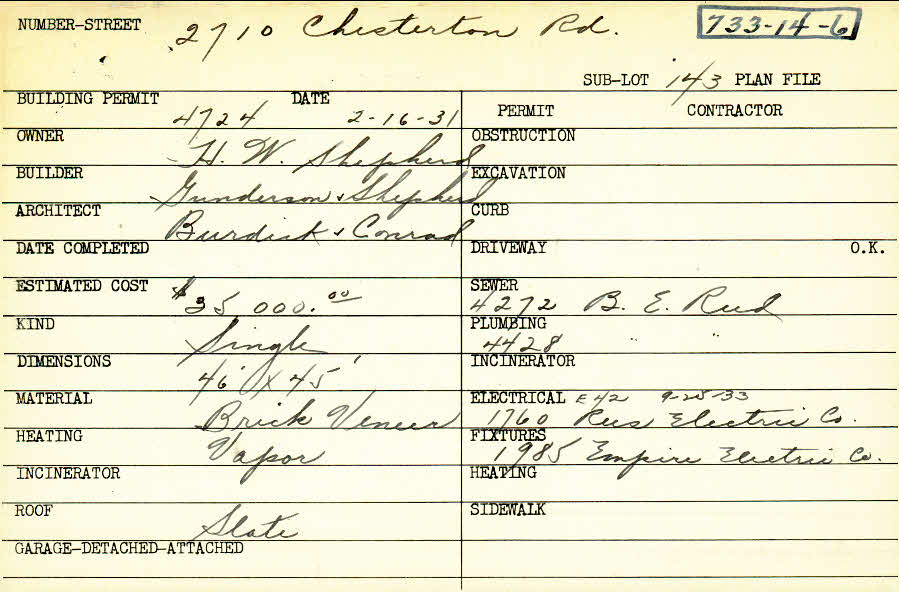 NUMBER-STREET 2710 Chesterton Rd. 733-14-6
SUB-LOT 143 PLAN FILE
BUILDING PERMIT 4724 DATE 2-16-31
PERMIT CONTRACTOR
OWNER H. W. Shepherd
OBSTRUCTION
BUILDER Gunderson & Shepherd
EXCAVATION
ARCHITECT Burdick & Conrad
CURB
DATE COMPLETED
DRIVEWAY O.K.
ESTIMATED COST $35 000.00
SEWER 4272 B. E. Reed
KIND Single
PLUMBING 4428 " "
DIMENSIONS 46' X 45'
INCINERATOR
MATERIAL Brick Veneer
ELECTRICAL E42 9-25-33
1760 Rees Electric Co.
HEATING Vapor
FIXTURES 1985 Empire Electric Co.
INCINERATOR
HEATING
ROOF Slate
SIDEWALK
GARAGE-DETACHED-ATTACHED